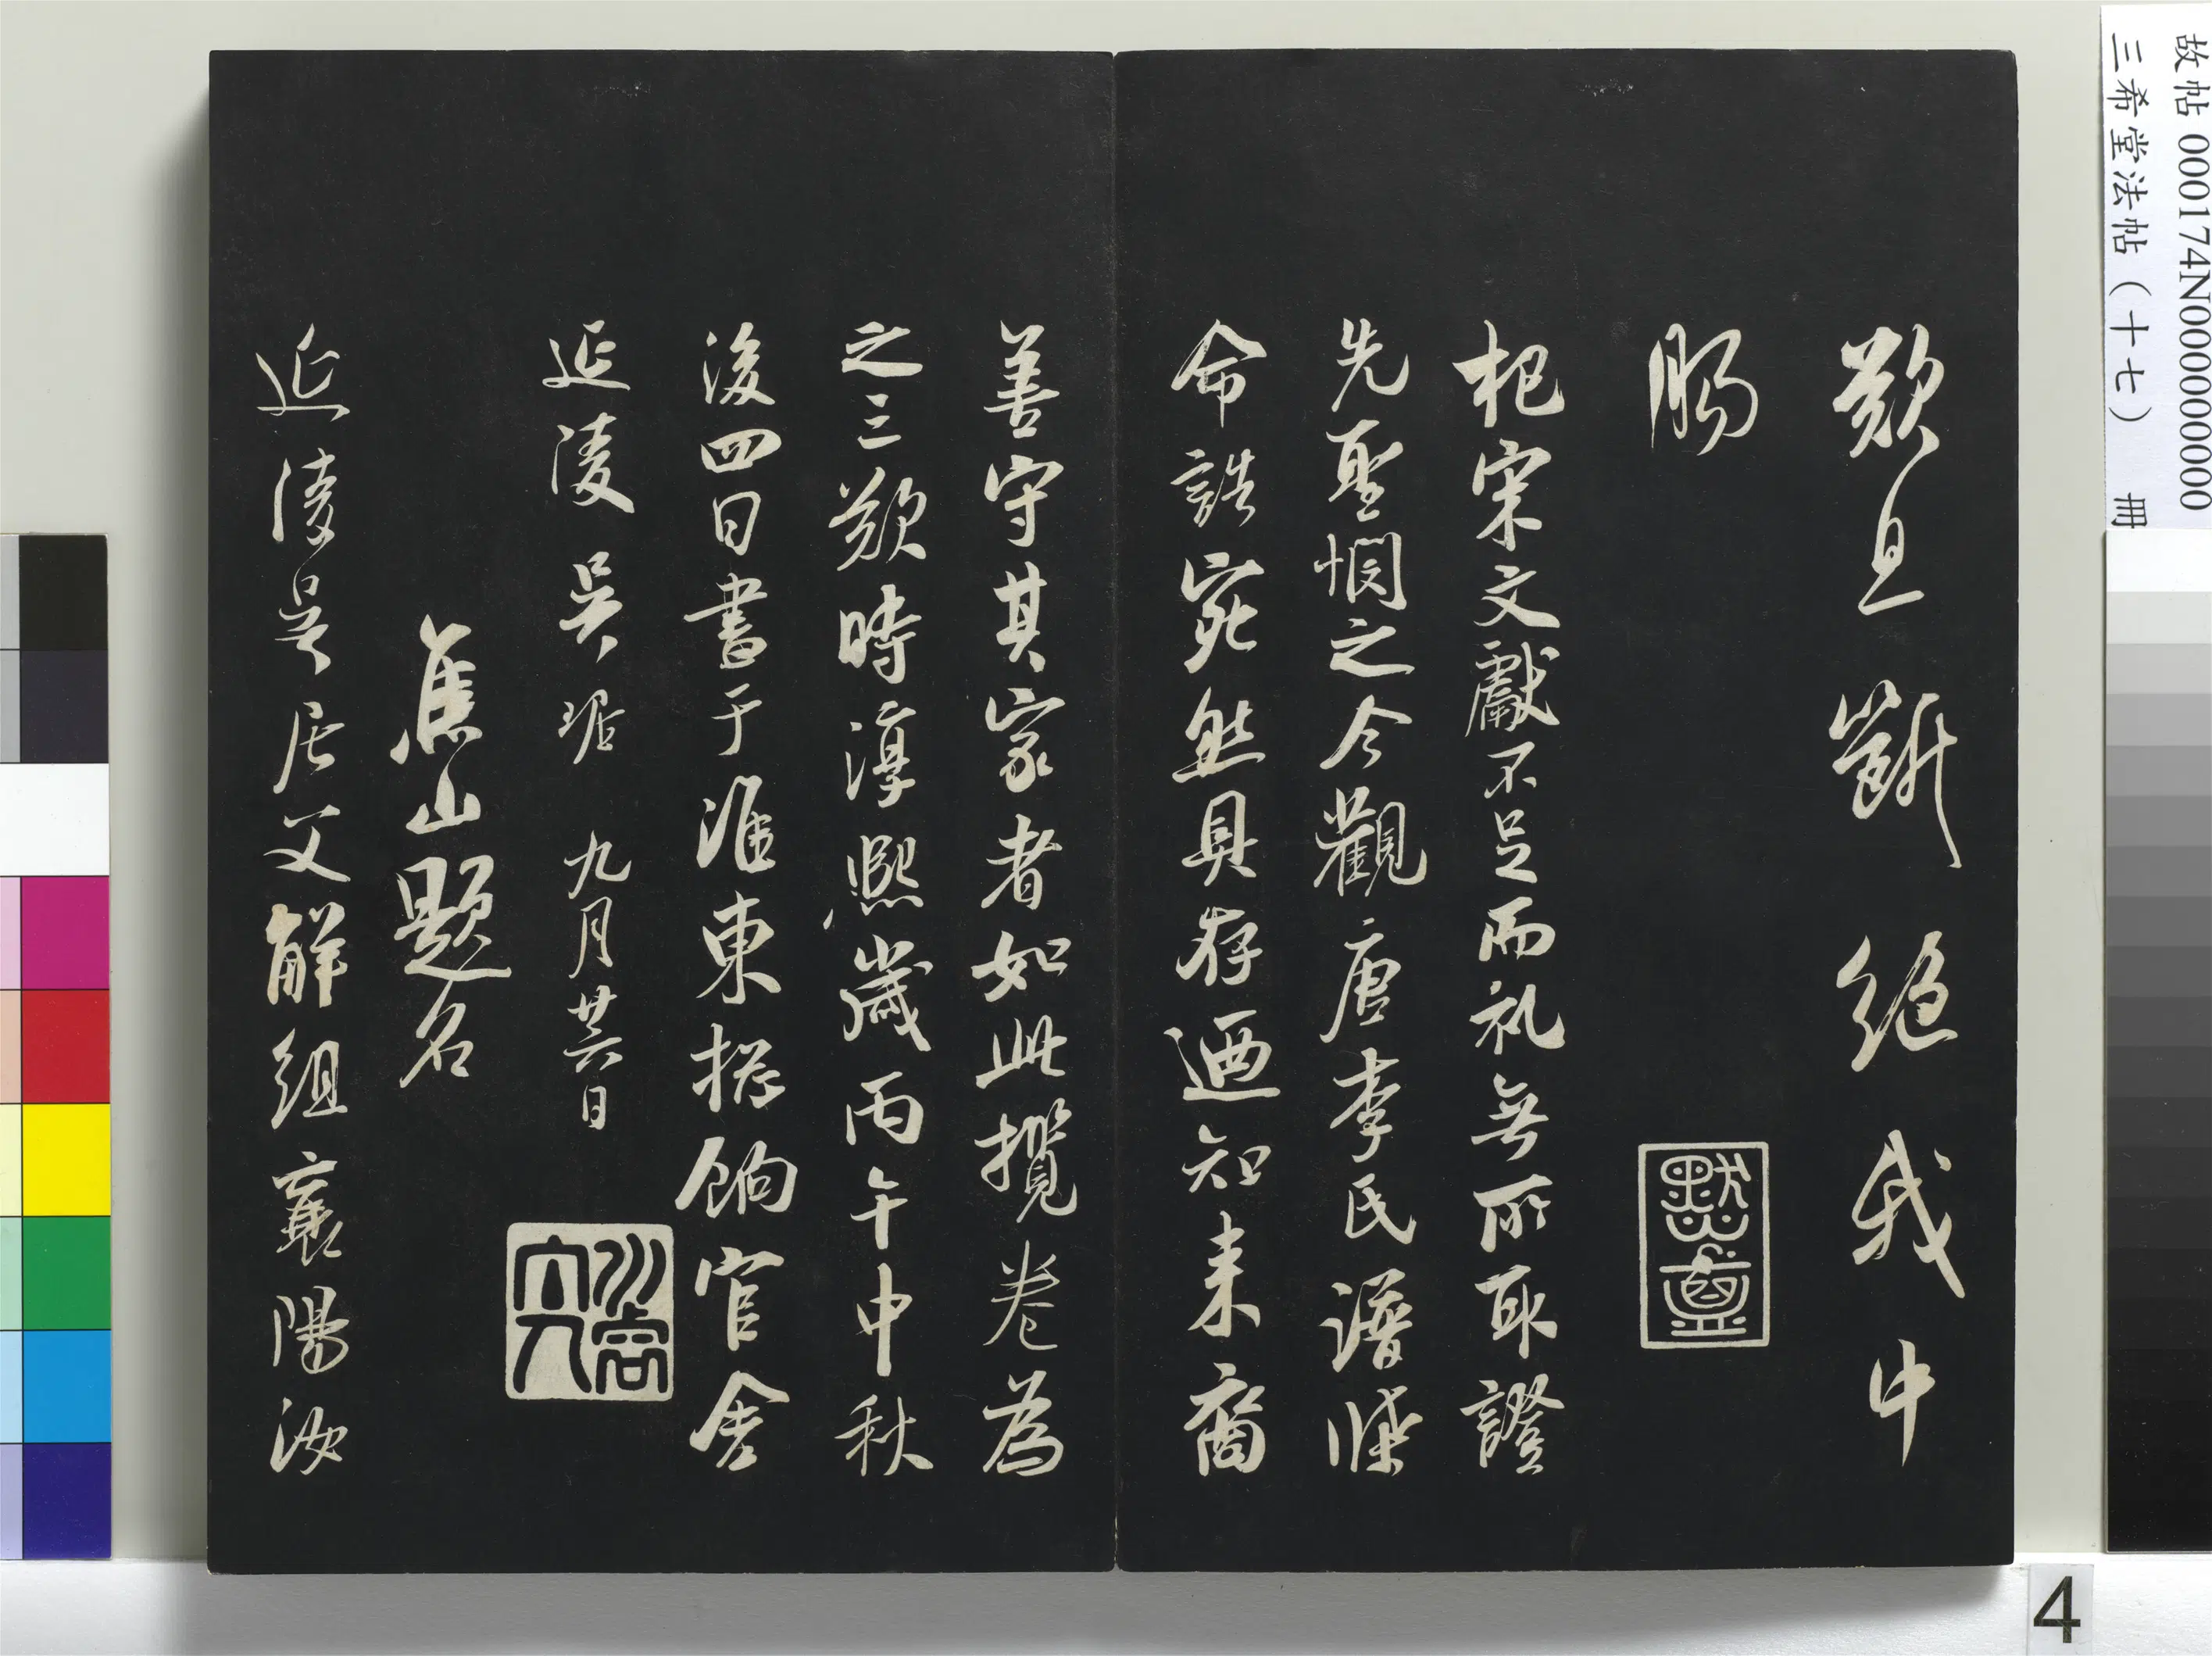 歎且斷絕我中
腸
默盦
杞宋文獻不足而礼無所取證
先聖憫之今觀唐李氏譜牒
命誥宛然具存迺知来裔
善守其家者如此攬卷為
之三歎時淳熙歲丙午中秋
後四日書于淮東揔餉官舍
延陵吳琚 九月廿六日
焦山題名
延陵吳居父解組襄陽汝
故帖 000174N000000000
三希堂法帖（十七） 冊
4